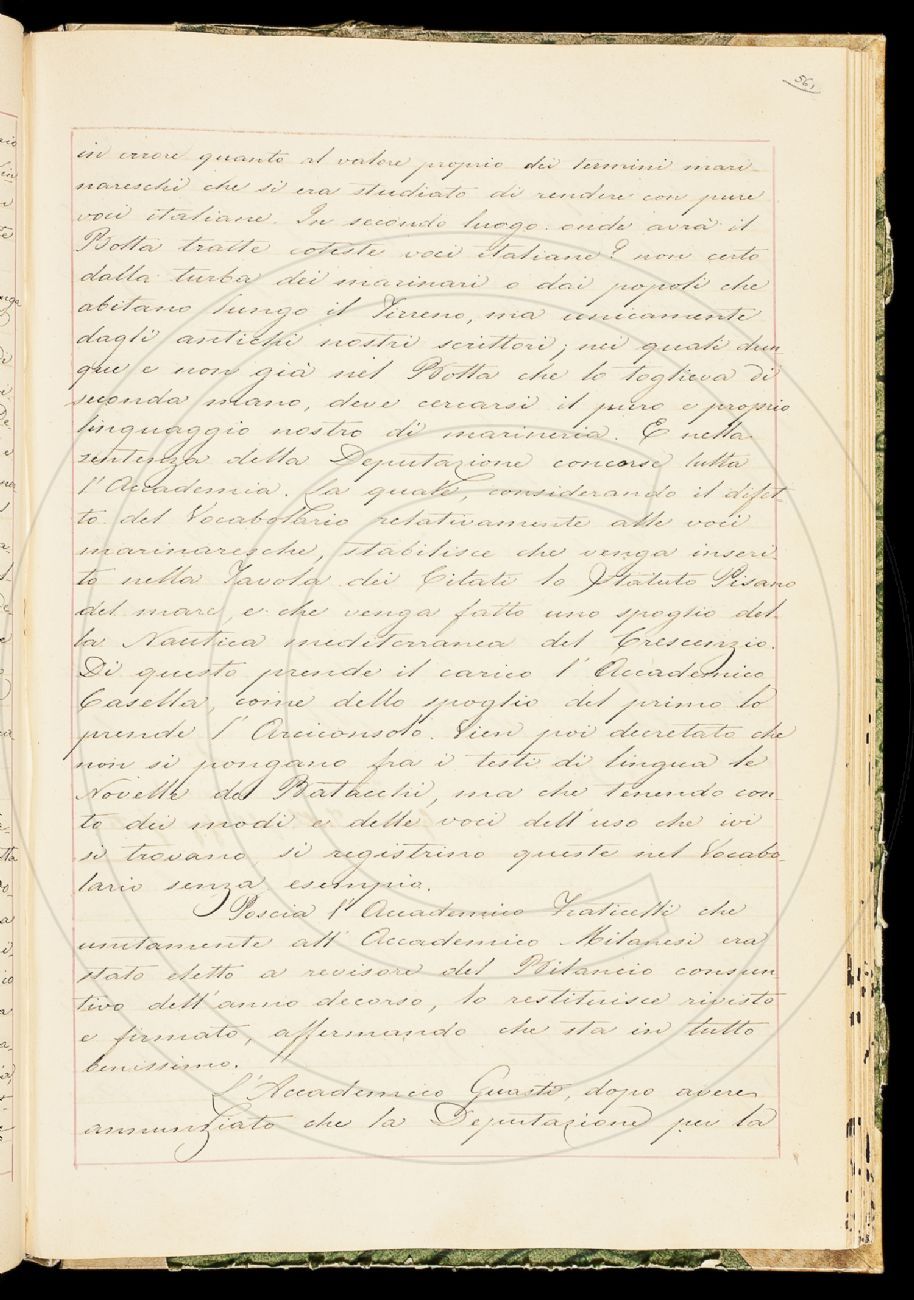 561
in errore quanto al valore proprio dei termini mari-
nareschi che si era studiato di rendere con pure
voci italiane. In secondo luogo: onde avrà il
Botta tratte coteste voci italiane? non certo
dalla turba dei marinari o dai popoli che
abitano lungo il Tirreno, ma unicamente
dagli antichi nostri scrittori; nei quali dun
que e non già nel Botta che lo toglieva di
seconda mano, deve cercarsi il puro e proprio
linguaggio nostro di marineria. E nella
sentenza della Deputazione concorse tutta
l'Accademia. La quale, considerando il difet-
to del Vocabolario relativamente alle voci
marinaresche, stabilisce che venga inseri-
to nella Tavola dei Citati lo Statuto Pisano
del mare, e che venga fatto uno spoglio del-
la Nautica mediterranea del Crescenzio.
Di questo prende il carico l'Accademico
Casella, come dello spoglio del primo lo
prende l'Arciconsolo. Vien poi decretato che
non si pongano fra i testi di lingua le
Novelle del Batacchi, ma che tenendo con-
to dei modi e delle voci dell'uso che ivi
si trovano si registrino queste nel Vocabo-
lario senza esempio.
Poscia l'Accademico Fraticelli che
unitamente all'Accademico Milanesi era
stato eletto a revisore del Bilancio consun
tivo dell'anno decorso, lo restituisce rivisto
e firmato, affermando che sta in tutto
benissimo.
L'Accademico Guasti, dopo avere
annunziato che la Deputazione per la